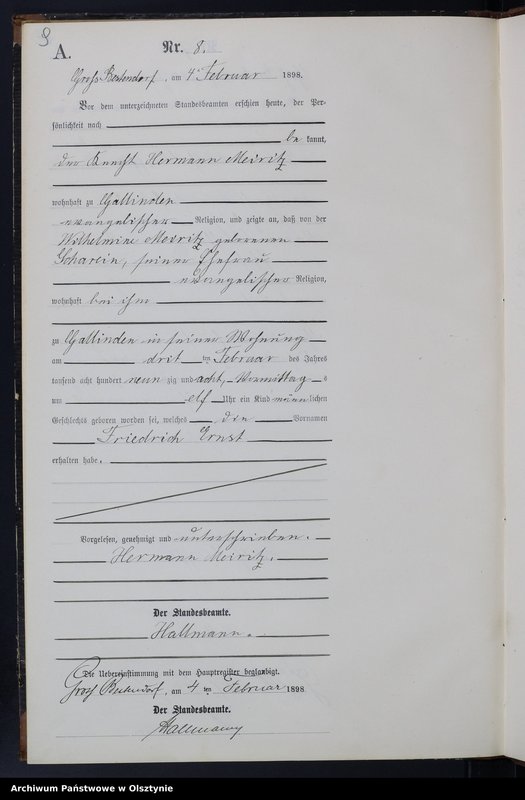 9
A.
Nr. 8.
Gross Bestendorf, am 4ten Februar 1898.
Vor dem unterzeichneten Standesbeamten erschien heute, der Per-
sönlichkeit nach
be kannt,
der Knecht Hermann Meiritz
wohnhaft zu Gallinden
evangelischer Religion, und zeigte an, daß von der
Wilhelmine Meiritz geborenen
Scharlin, seiner Ehefrau
evangelischer Religion,
wohnhaft bei ihm
zu Gallinden in seiner Wohnung
am drit ten Februar des Jahres
tausend acht hundert neun zig und acht, Vormittag s
um elf Uhr ein Kind männ lichen
Geschlechts geboren worden sei, welches den Vornamen
Friedrich Ernst
erhalten habe.
Vorgelesen, genehmigt und unterschrieben.
Hermann Meiritz.
Der Standesbeamte.
Hallmann.
Die Uebereinstimmung mit dem Hauptregister beglaubigt.
Gross Bestendorf, am 4 ten Februar 1898
Der Standesbeamte.
Hallmann
Archiwum Państwowe w Olsztynie